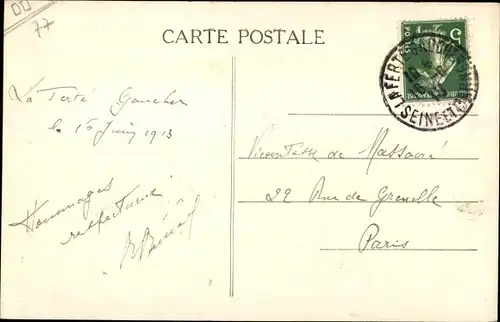 77
CARTE POSTALE
LA FERTE-GAUCHER
SEINE ET
5
La Ferté Gaucher
le 15 Juin 1913
Hommages
respectueux
Vicomtesse de Massacré
22 Rue de Grenelle
Paris